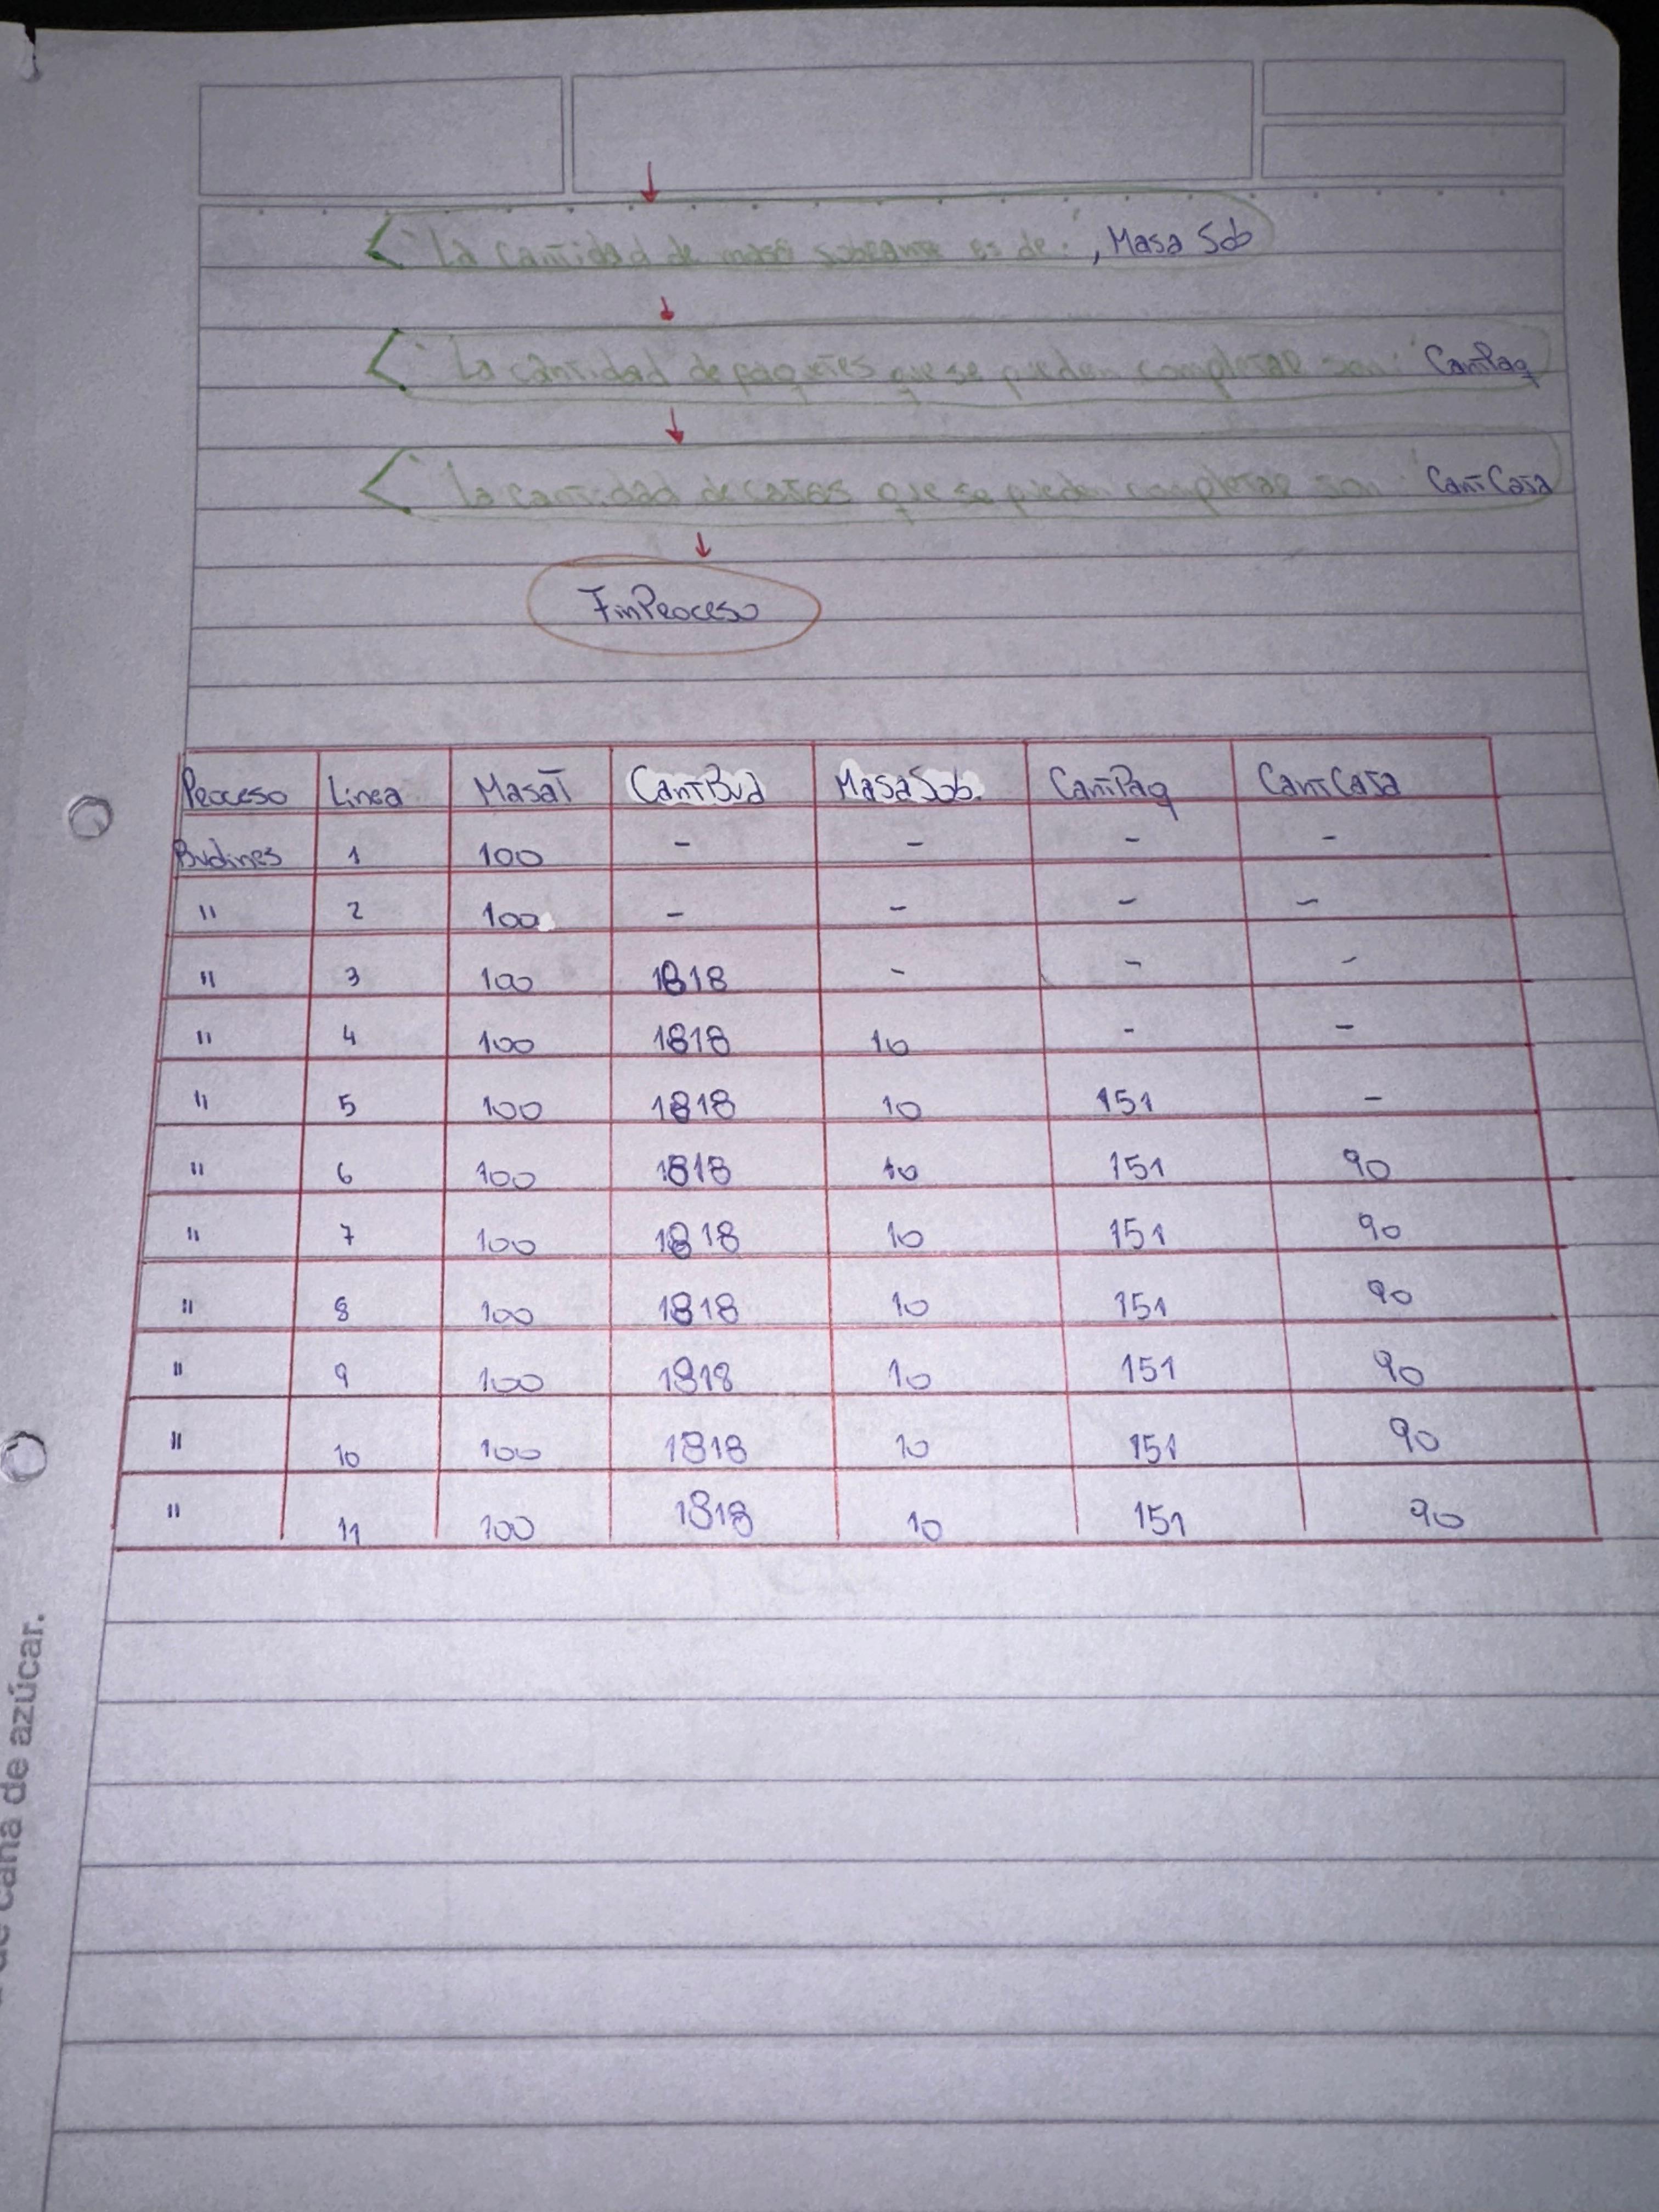 "La cantidad de masa sobrante es de: ", Masa Sob
"La cantidad de paquetes que se pueden completar son: " CantPaq
"La cantidad de cajas que se pueden completar son: " CantCaja
FinProceso
Proceso Linea MasaT CantBud MasaSob. CantPaq CantCaja
Budines 1 100 - - - -
" 2 100 - - - -
" 3 100 1818 - - -
" 4 100 1818 10 - -
" 5 100 1818 10 151 -
" 6 100 1818 10 151 90
" 7 100 1818 10 151 90
" 8 100 1818 10 151 90
" 9 100 1818 10 151 90
" 10 100 1818 10 151 90
" 11 100 1818 10 151 90
de caña de azúcar.